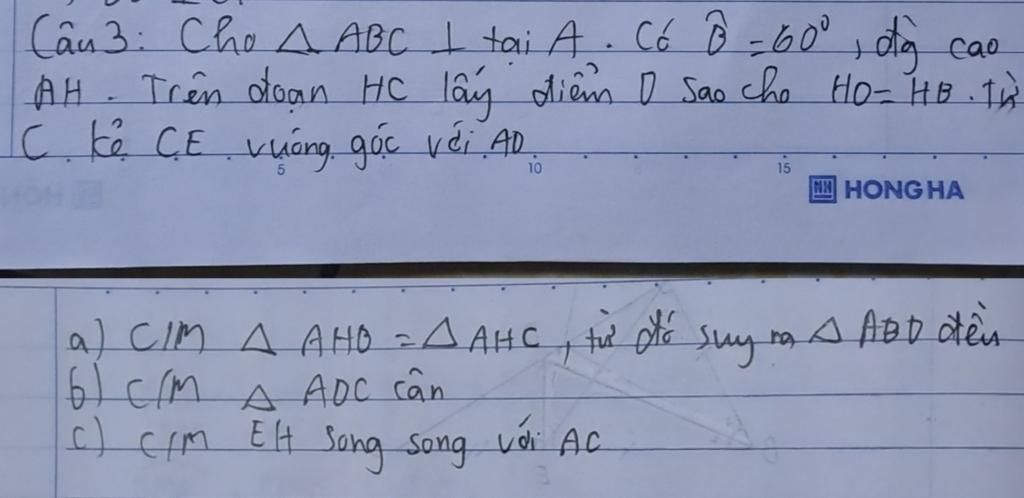 Câu 3: Cho △ ABC ⊥ tại A. Có B̂ = 60⁰, đg cao
AH. Trên đoạn HC lấy điểm D sao cho HD = HB. Từ
C kẻ CE vuông góc với AD
5 10 15
HONG HA
a) C/M △ AHD = △ AHC, từ đó suy ra △ ABD đều
b) C/M △ ADC cân
c) C/M EH song song với AC